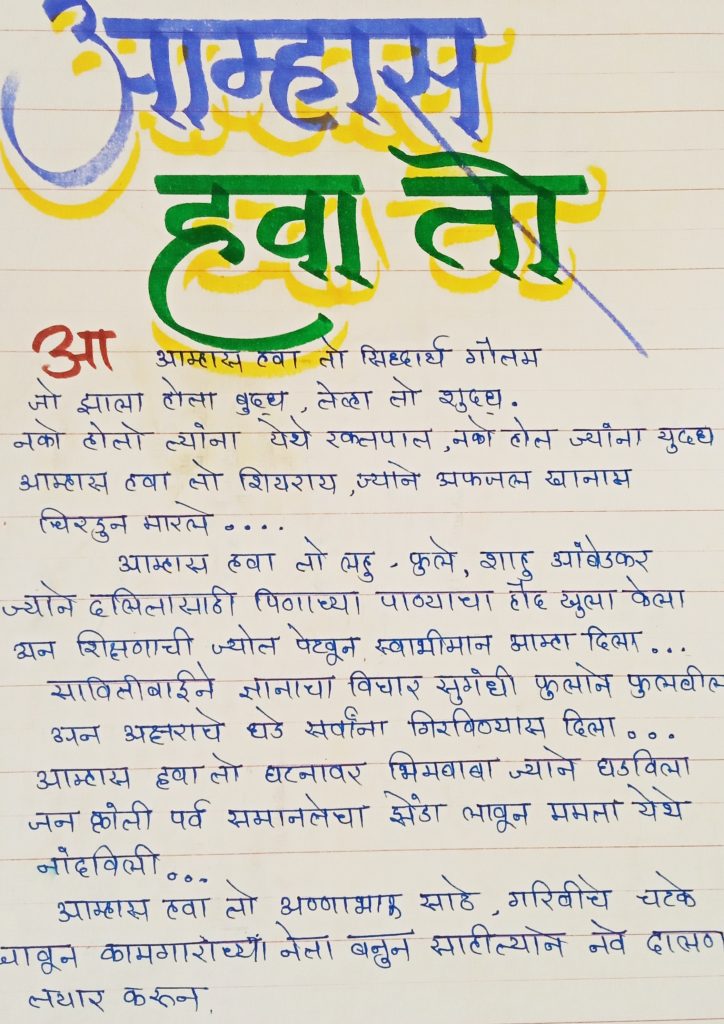 आम्हास
हवा तो
आ आम्हास हवा तो सिध्दार्थ गौतम
जो झाला होता बुद्ध, तेव्हा तो शुद्ध.
नको होतो त्यांना येथे रक्तपात, नको होत ज्यांना युद्ध
आम्हास हवा तो शिवराय, ज्याने अफजल खानास
चिरडुन मारले ....
आम्हास हवा तो लहु - फुले, शाहु आंबेडकर
ज्याने दलितासाठी पिणाच्या पाण्याचा हौद खुला केला
अन शिक्षणाची ज्योत पेटवून स्वाभीमान आम्हा दिला ...
सावित्रीबाईने ज्ञानाचा विचार सुगंधी फुलाने फुलवील
अन अक्षराचे धडे सर्वांना गिरविण्यास दिला ...
आम्हास हवा तो घटनावर भिमबाबा ज्याने घडविला
जन क्रांती पर्व समानतेचा झेंडा लावून ममता येथे
नांदविली ...
आम्हास हवा तो अण्णाभाऊ साठे, गरिबीचे चटके
खावून कामगारांच्या नेता बनुन साहीत्याने नवे दालण
तयार करून.